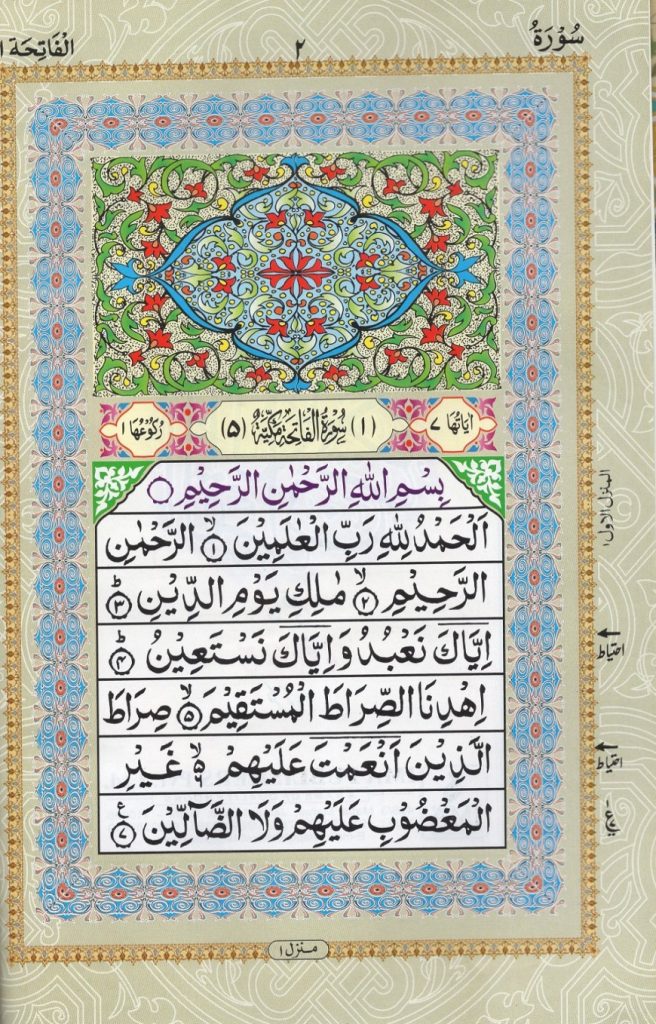 سُوْرَةُ ٢ الْفَاتِحَة ١
اٰيَاتُهَا ٧ (١) سُوْرَةُ الْفَاتِحَةِ مَكِّيَّةٌ (٥) رُكُوْعُهَا ١
بِسْمِ اللّٰهِ الرَّحْمٰنِ الرَّحِيْمِ ○
اَلْحَمْدُ لِلّٰهِ رَبِّ الْعٰلَمِيْنَ ۙ﴿١﴾ الرَّحْمٰنِ
الرَّحِيْمِ ۙ﴿٢﴾ مٰلِكِ يَوْمِ الدِّيْنِ ؕ﴿٣﴾
اِيَّاكَ نَعْبُدُ وَ اِيَّاكَ نَسْتَعِيْنُ ؕ﴿٤﴾
اِهْدِنَا الصِّرَاطَ الْمُسْتَقِيْمَ ۙ﴿٥﴾ صِرَاطَ
الَّذِيْنَ اَنْعَمْتَ عَلَيْهِمْ ۙ۬﴿٦﴾ غَيْرِ
الْمَغْضُوْبِ عَلَيْهِمْ وَلَا الضَّآلِّيْنَ ﴿٧﴾ ع
المنزل الاول ١
احتیاط
احتیاط
منزل ١